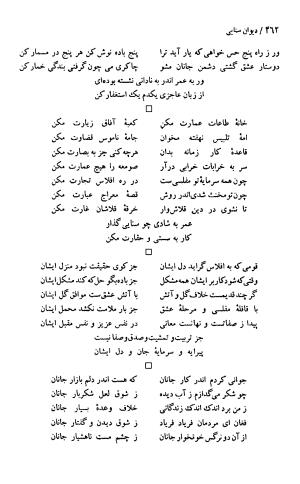 ۴۶۲ / دیوان سنایی
ور ز راه پنج حس خواهی که یار آید ترا پنج باده نوش کن هر پنج در مسمار کن
دوستار عشق گشتی دشمن جانان مشو چاکری می چون گرفتی بندگی خمار کن
ور به عمر اندر به نادانی نشسته بوده‌ای
از زبان عاجزی یکدم یک استغفار کن
خانهٔ طاعات عمارت مکن کعبهٔ آفاق زیارت مکن
امهٔ تلبیس نهفته مخوان جامهٔ ناموس قضاوت مکن
قاعدهٔ کار زمانه بدان هرچه کنی جز به بصارت مکن
سر به خرابات خرابی درآر صومعه را هیچ عمارت مکن
چون همه سرمایهٔ تو مفلسی‌ست در ره افلاس تجارت مکن
چون تو مخنث شدی اندر روش قصهٔ معراج عبارت مکن
تا نشوی در دین قلاش‌وار خرقهٔ قلاشان غارت مکن
عمر به شادی چو سنایی گذار
کار به سستی و حقارت مکن
قومی که به افلاس گراید دل ایشان جز کوی حقیقت نبود منزل ایشان
وقتی که شود کار برایشان همه مشکل جز باده بگو حل که کند مشکل ایشان
گرچند قدیمست خلاف گل و آتش با آتش عشق ست موافق گل ایشان
با قافلهٔ مفلسی و مرحلهٔ عشق جز بار ملامت نکشد محمل ایشان
پیدا ز صفانست و نهانست معانی در نفس عزیز و نفس مقبل ایشان
جز تربیت و تمشیت و صدق و صفا نیست
پیرایه و سرمایهٔ جان و دل ایشان
جوانی کردم اندر کار جانان که هست اندر دلم بازار جانان
چو شکر می‌گدازم ز آب دیده ز شوق لعل شکربار جانان
ز من برد اندک اندک زندگانی خلاف وعدهٔ بسیار جانان
فغان ای مردمان فریاد فریاد ز شوق دیدن و گفتار جانان
از آن دو نرگس خونخوار جانان ز چشم مست ناهشیار جانان